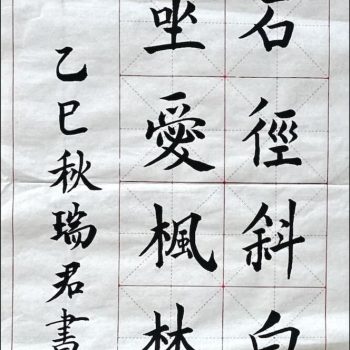 石徑斜白
坐愛楓林
乙巳秋瑞君書